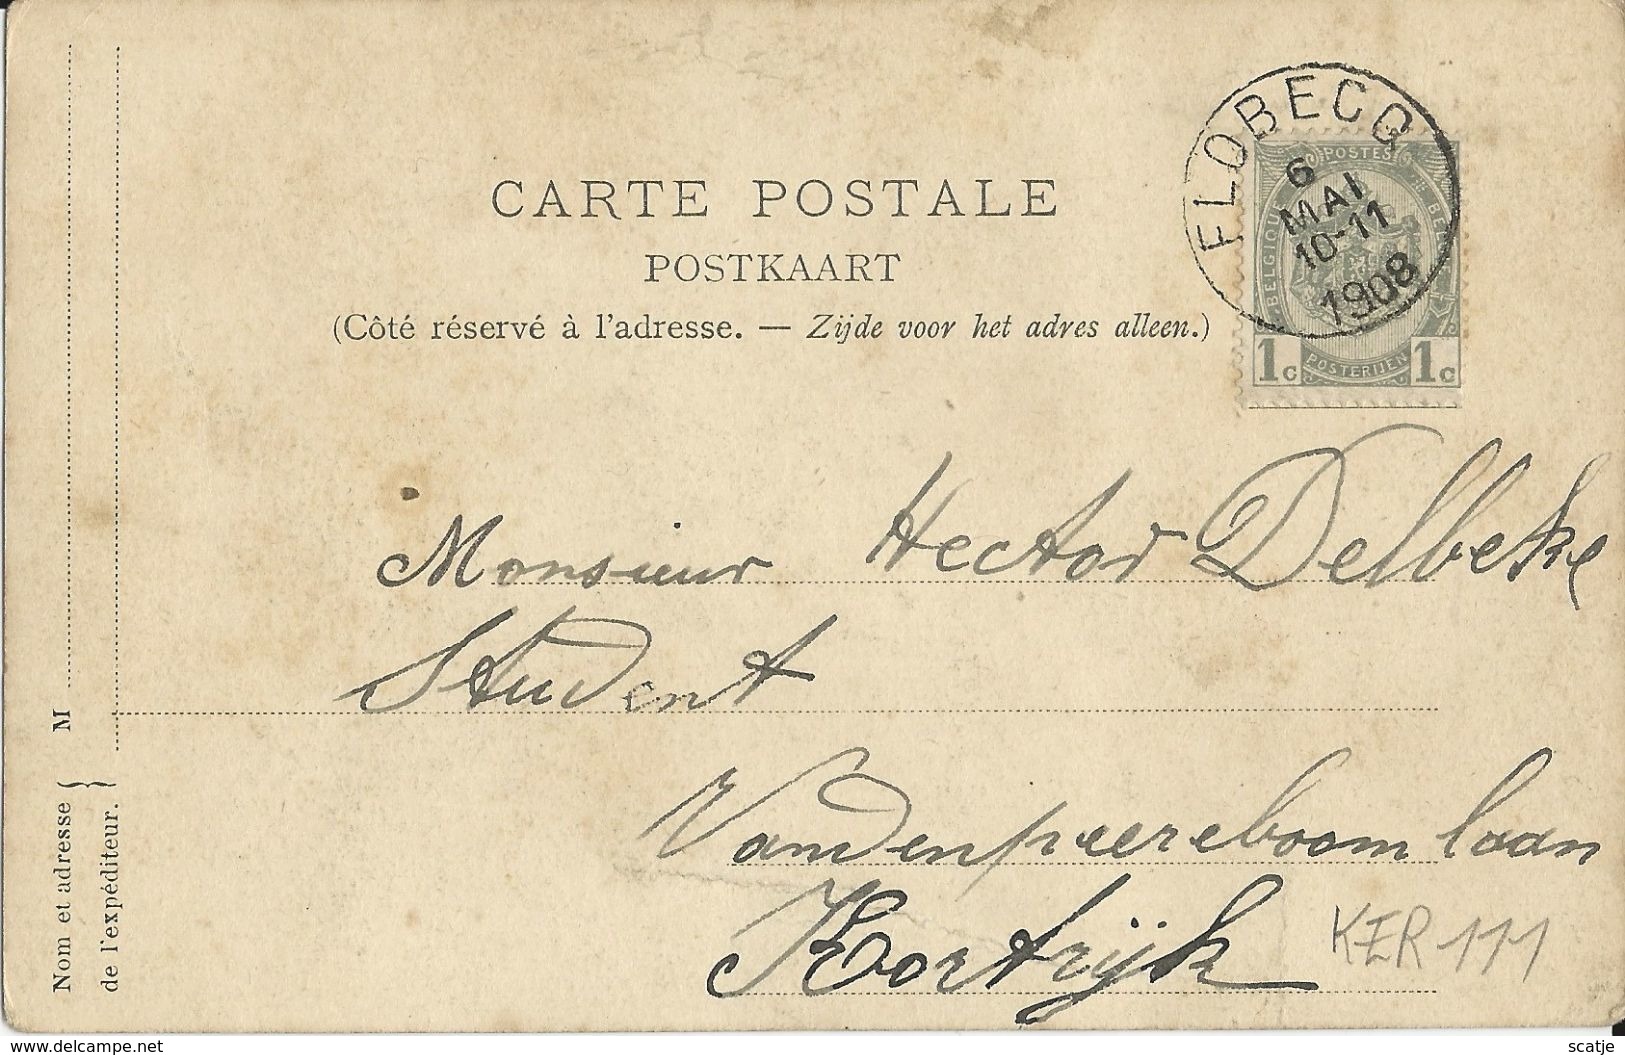 CARTE POSTALE
POSTKAART
(Côté réservé à l'adresse. — Zijde voor het adres alleen.)
FLOBECQ
6
MAI
10-11
1908
POSTES
BELGIQUE
POSTERIJEN
1c 1c
Monsieur Hector Delbeke
Student
Vandenpeereboom laan
Kortrijk
KER 111
Nom et adresse { M
de l'expéditeur. }
www.delcampe.net
scatje